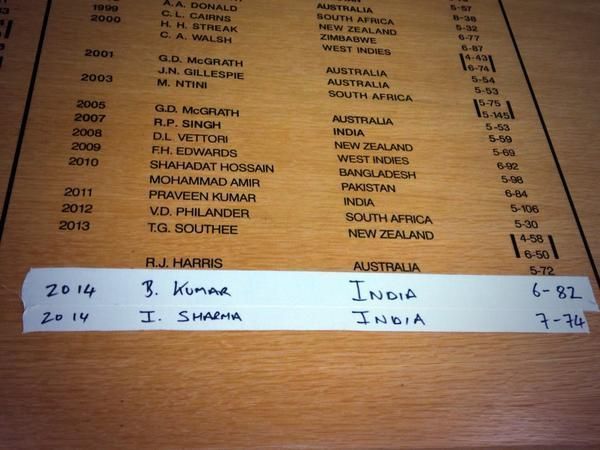 AUSTRALIA 8-38
A.A. DONALD SOUTH AFRICA 5-32
1999 C.L. CAIRNS NEW ZEALAND 6-77
2000 H.H. STREAK ZIMBABWE 6-87
C.A. WALSH WEST INDIES 4-43
6-74
2001 G.D. McGRATH AUSTRALIA 5-54
J.N. GILLESPIE AUSTRALIA 5-53
2003 M. NTINI SOUTH AFRICA 5-75
5-145
2005 G.D. McGRATH AUSTRALIA 5-53
2007 R.P. SINGH INDIA 5-59
2008 D.L. VETTORI NEW ZEALAND 5-69
2009 F.H. EDWARDS WEST INDIES 6-92
2010 SHAHADAT HOSSAIN BANGLADESH 5-98
MOHAMMAD AMIR PAKISTAN 6-84
2011 PRAVEEN KUMAR INDIA 5-106
2012 V.D. PHILANDER SOUTH AFRICA 5-30
2013 T.G. SOUTHEE NEW ZEALAND 4-58
6-50
R.J. HARRIS AUSTRALIA 5-72
2014 B. KUMAR INDIA 6-82
2014 I. SHARMA INDIA 7-74